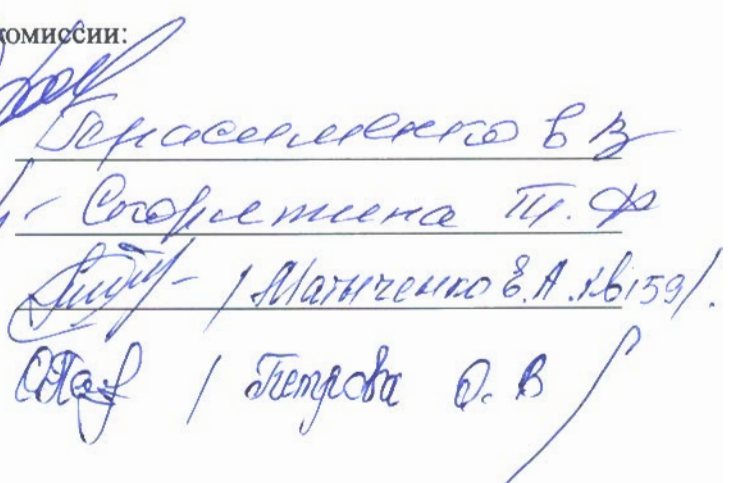 комиссии:
Герасименко В В
Т. Ф
/ Матыченко Е.А. кв159/.
/ Петрова О. В /